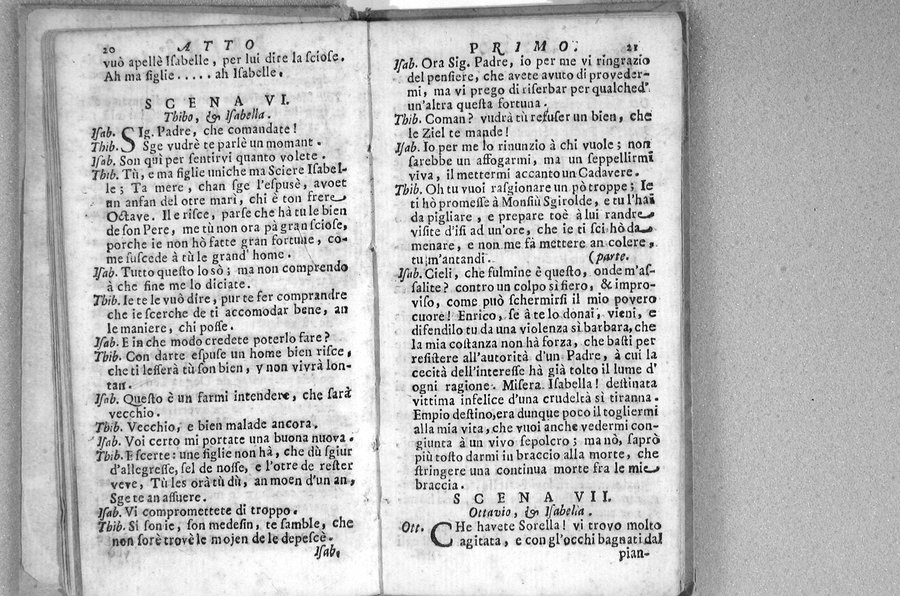 20 ATTO
vuò apellè Isabelle, per lui dire la sciose.
Ah ma figlie ..... ah Isabelle.
SCENA VI.
Thibo, & Isabella.
Isab. SIg. Padre, che comandate!
Thib. Sge vudrè te parlè un momant.
Isab. Son quì per sentirvi quanto volete.
Thib. Tù, e ma figlie uniche ma Sciere Isabel-
le; Ta mere, chan sge l'espusè, avoet
un ansan del otre mari, chi è ton frere
Octave. Il e risce, parse che hà tu le bien
de son Pere, me tù non ora pà gran sciose,
porche ie non hò fatte gran fortune, co-
me suscede à tù le grand' home.
Isab. Tutto questo lo sò; ma non comprendo
à che fine me lo diciate.
Thib. Ie te le vuò dire, pur te fer comprandre
che ie scerche de ti accomodar bene, an
le maniere, chi posse.
Isab. E in che modo credete poterlo fare?
Thib. Con darte espuse un home bien risce,
che ti lesserà tù son bien, y non vivrà lon-
tan.
Isab. Questo è un farmi intendere, che sarà
vecchio.
Thib. Vecchio, e bien malade ancora.
Isab. Voi certo mi portate una buona nuova.
Thib. E scerte: une figlie non hà, che dù sgiur
d'allegresse, sel de nosse, e l'otre de rester
veve, Tù les orà tù dù, an moen d'un an,
Sge te an assuere.
Isab. Vi compromettete di troppo.
Thib. Si son ie, son medesin, te samble, che
non sorè trovè le mojen de le depescè.
Isab.
PRIMO. 21
Isab. Ora Sig. Padre, io per me vi ringrazio
del pensiere, che avete avuto di proveder-
mi, ma vi prego di riserbar per qualched'
un'altra questa fortuna.
Thib. Coman? vudrà tù refuser un bien, che
le Ziel te mande!
Isab. Io per me lo rinunzio à chi vuole; non
sarebbe un affogarmi, ma un seppellirmi
viva, il mettermi accanto un Cadavere.
Thib. Oh tu vuoi rasgionare un pò troppe; Ie
ti hò promesse à Monsiù Sgirolde, e tu l'hai
da pigliare, e prepare toè à lui randre
visite d'isi ad un'ore, che ie ti sci hò da
menare, e non me fà mettere an colere,
tu m'antandi. (parte.
Isab. Cieli, che fulmine è questo, onde m'as-
salite? contro un colpo sì fiero, & impro-
viso, come può schermirsi il mio povero
cuore! Enrico, se à te lo donai, vieni, e
difendilo tu da una violenza sì barbara, che
la mia costanza non hà forza, che basti per
resistere all'autorità d'un Padre, à cui la
cecità dell'interesse hà già tolto il lume d'
ogni ragione. Misera Isabella! destinata
vittima infelice d'una crudeltà sì tiranna.
Empio destino, era dunque poco il togliermi
alla mia vita, che vuoi anche vedermi con-
giunta à un vivo sepolcro; ma nò, saprò
più tosto darmi in braccio alla morte, che
stringere una continua morte fra le mie
braccia.
SCENA VII.
Ottavio, & Isabella.
Ott. CHe havete Sorella! vi trovo molto
agitata, e con gl'occhi bagnati dal
pian-